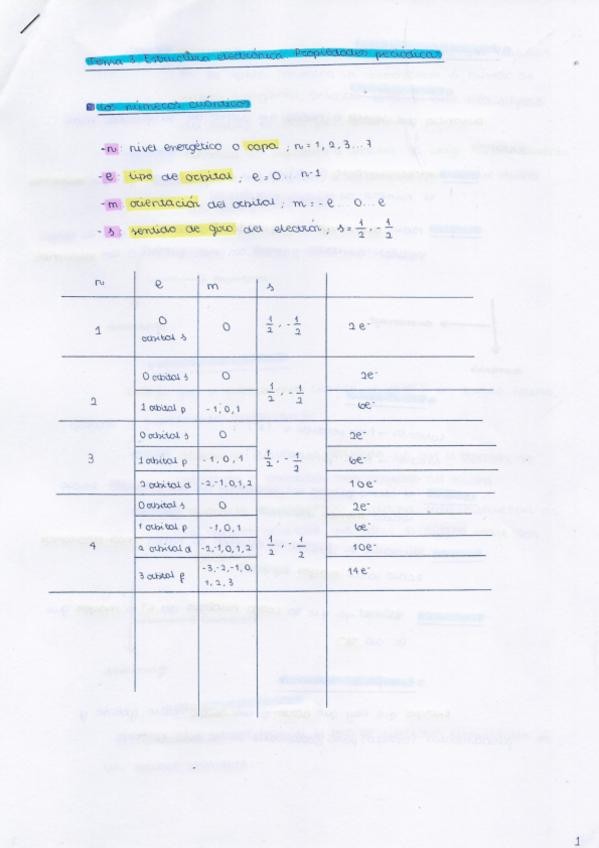 Tema 3. Estructura electrónica. Propiedades periódicas
Los números cuánticos
- n: nivel energético o capa; n = 1, 2, 3...7
- l: tipo de orbital; l = 0... n-1
- m: orientación del orbital; m = -l... 0... l
- s: sentido de giro del electrón; s = 1/2, -1/2
n l m s
1 0 orbital s 0 1/2, -1/2 2e⁻
2 0 orbital s 0 1/2, -1/2 2e⁻
1 orbital p -1, 0, 1 6e⁻
3 0 orbital s 0 1/2, -1/2 2e⁻
1 orbital p -1, 0, 1 6e⁻
2 orbital d -2, -1, 0, 1, 2 10e⁻
4 0 orbital s 0 1/2, -1/2 2e⁻
1 orbital p -1, 0, 1 6e⁻
2 orbital d -2, -1, 0, 1, 2 10e⁻
3 orbital f -3, -2, -1, 0, 1, 2, 3 14e⁻
1